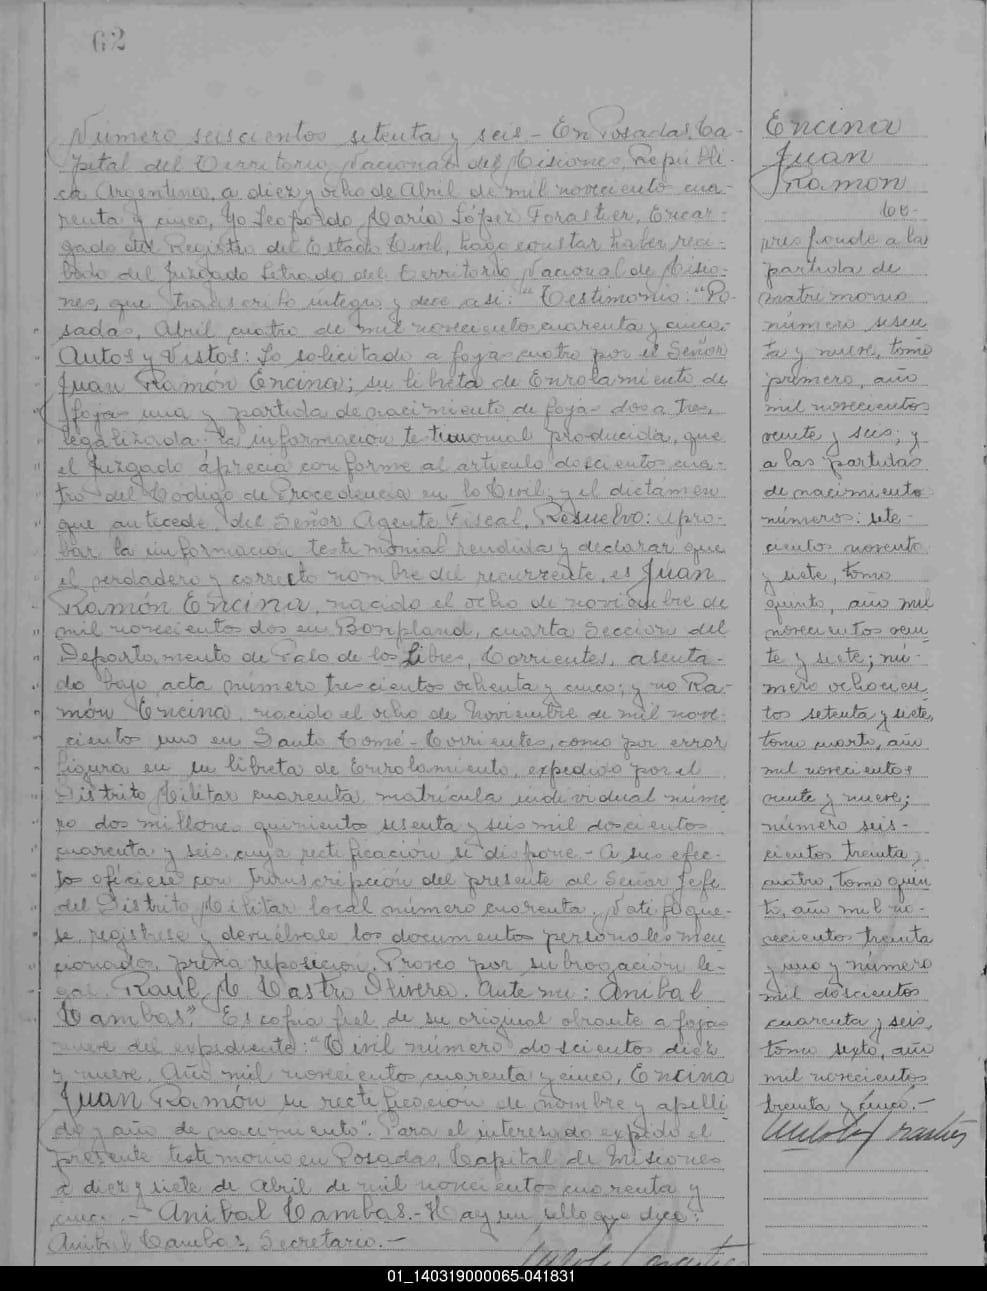 62
Número seiscientos setenta y seis - En Posadas, Ca-
pital del Territorio Nacional del Misiones, Repúbli-
ca Argentina, a diez y ocho de Abril de mil noveciento cua-
renta y cinco, Yo Leopoldo María López Forastier, Encar-
gado del Registro del Estado Civil, hago constar haber reci-
bido del Juzgado Letrado del Territorio Nacional de Misio-
nes, que transcribo integro y dice asi: "Testimonio: "Po-
sadas, Abril cuatro de mil novecientos cuarenta y cinco.-
Autos y Vistos: Lo solicitado a fojas cuatro por el Señor
Juan Ramón Encina; su libreta de Enrolamiento de
fojas una y partida de nacimiento de fojas dos a tres,
legalizada. la información testimonial producida, que
el Juzgado aprecia conforme al artículo doscientos cua-
tro del Código de Procedencia en lo Civil; y el dictámen
que antecede del Señor Agente Fiscal, Resuelvo: apro-
bar la información testimonial rendida y declarar que
el verdadero y correcto nombre del recurrente es Juan
Ramón Encina, nacido el ocho de noviembre de
mil novecientos dos en Bonpland, cuarta Sección del
Departamento de Paso de los Libres, Corrientes, asenta-
do bajo acta número trescientos ochenta y cinco; y no Ra-
món Encina, nacido el ocho de Noviembre de mil nove-
cientos uno en Santo Tomé - Corrientes, como por error
figura en su libreta de Enrolamiento, expedida por el
Distrito Militar cuarenta, matrícula individual núme
ro dos millones quinientos sesenta y seis mil doscientos
cuarenta y seis, cuya rectificación se dispone.- A sus efec-
tos ofíciese con transcripción del presente al Señor Jefe
del Distrito Militar local número cuarenta. Notifíque-
se, regístrese y devuélvase los documentos personales men
cionados, previa reposición. Proveo por subrogación le-
gal. Raúl M Castro Olivera. Ante mi: Anibal
Cambas". Es copia fiel de su original obrante a fojas
nueve del expediente: "Civil número doscientos diez
y nueve, Año mil novecientos cuarenta y cinco, Encina
Juan Ramón su rectificación de nombre y apelli
do y año de nacimiento". Para el interesado expido el
presente testimonio en Posadas, Capital de Misiones
a diez y siete de Abril de mil novecientos cuarenta y
cinco.- Anibal Cambas.- Hay un sello que dice:
Anibal Cambas, Secretario.-
Encina
Juan
Ramón
Co-
rresponde a la
partida de
matrimonio
número sesen
ta y nueve, tomo
primero, año
mil novecientos
veinte y seis; y
a las partidas
de nacimiento
números: sete-
cientos noventa
y siete, tomo
quinto, año mil
novecientos vein-
te y siete; nú-
mero ochocien
tos setenta y siete,
tomo cuarto, año
mil novecientos
veinte y nueve;
número seis-
cientos treinta y
cuatro, tomo quin
to, año mil no-
vecientos treinta
y uno y número
mil doscientos
cuarenta y seis,
tomo sexto, año
mil novecientos
treinta y cinco.-
01_140319000065-041831